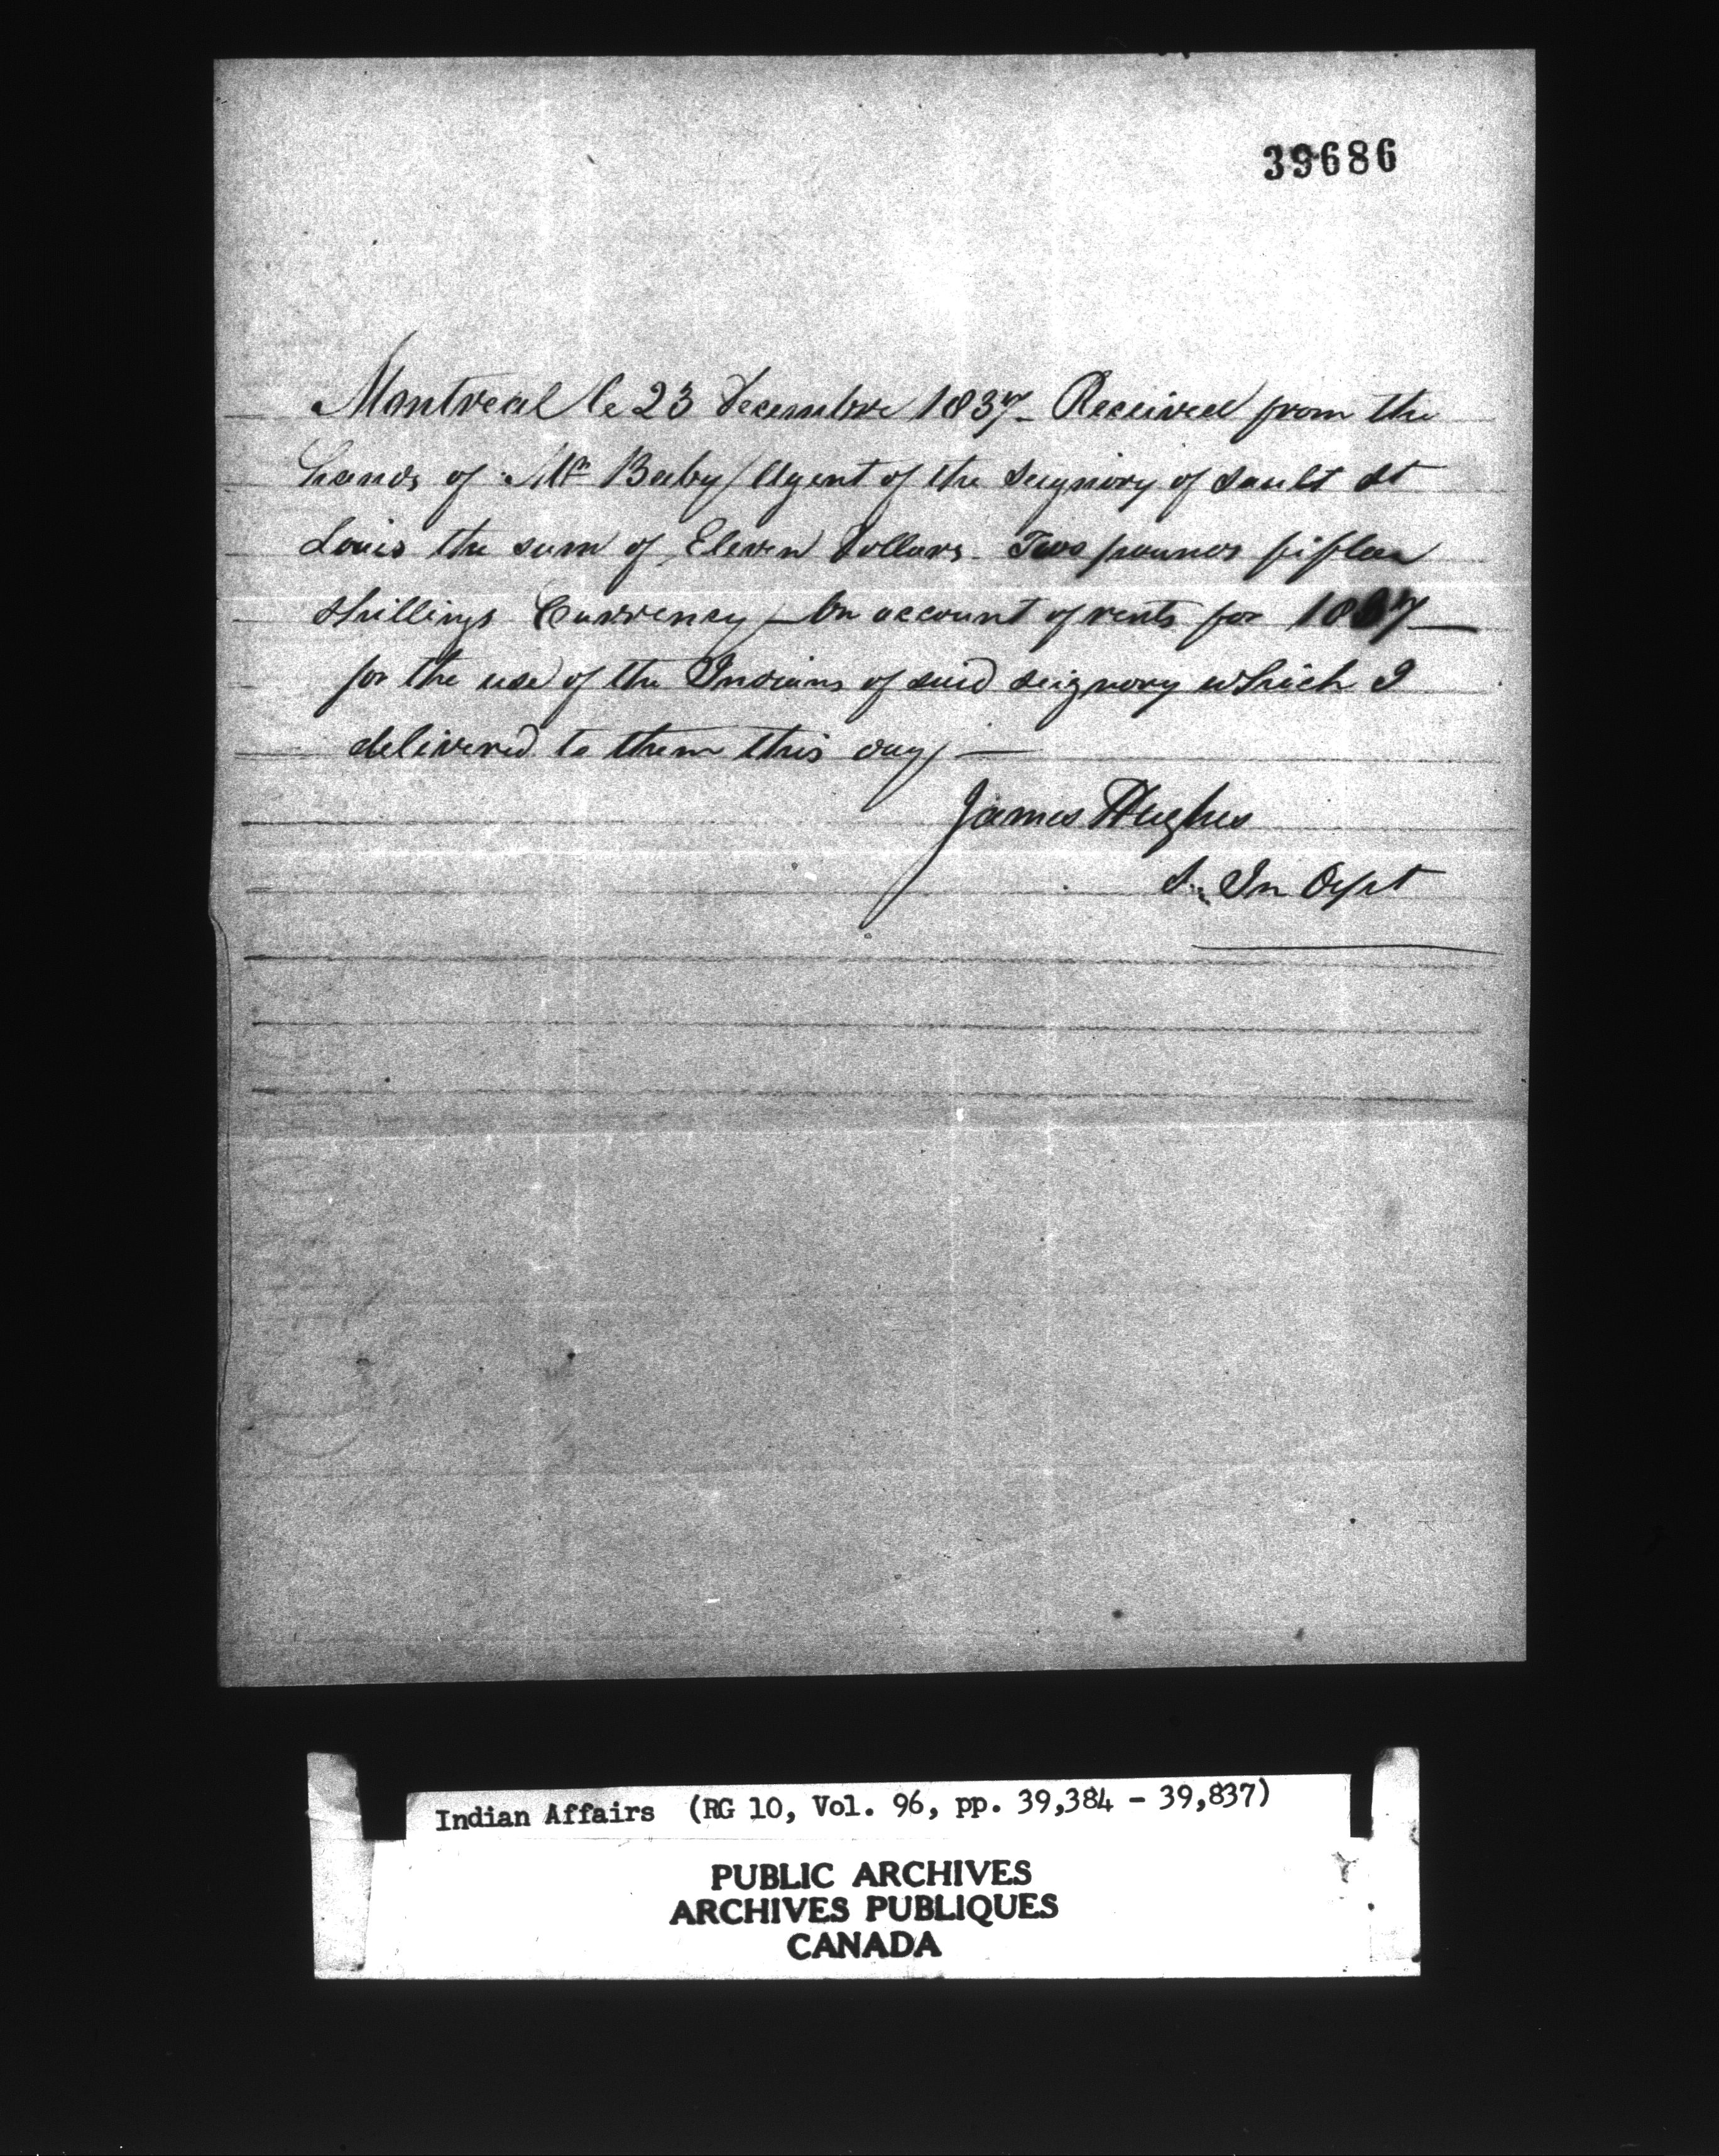 39686
Montreal le 23 Decembre 1837 - Received from the
hands of Mr Baby Agent of the Seignory of Sault St
Louis the sum of Eleven Dollars - Two pounds fifteen
Shillings Currency - On account of rents for 1837 —
for the use of the Indians of said Seignory which I
delivered to them this day —
James Hughes
S. In Dept
Indian Affairs (RG 10, Vol. 96, pp. 39,384 - 39,837)
PUBLIC ARCHIVES
ARCHIVES PUBLIQUES
CANADA